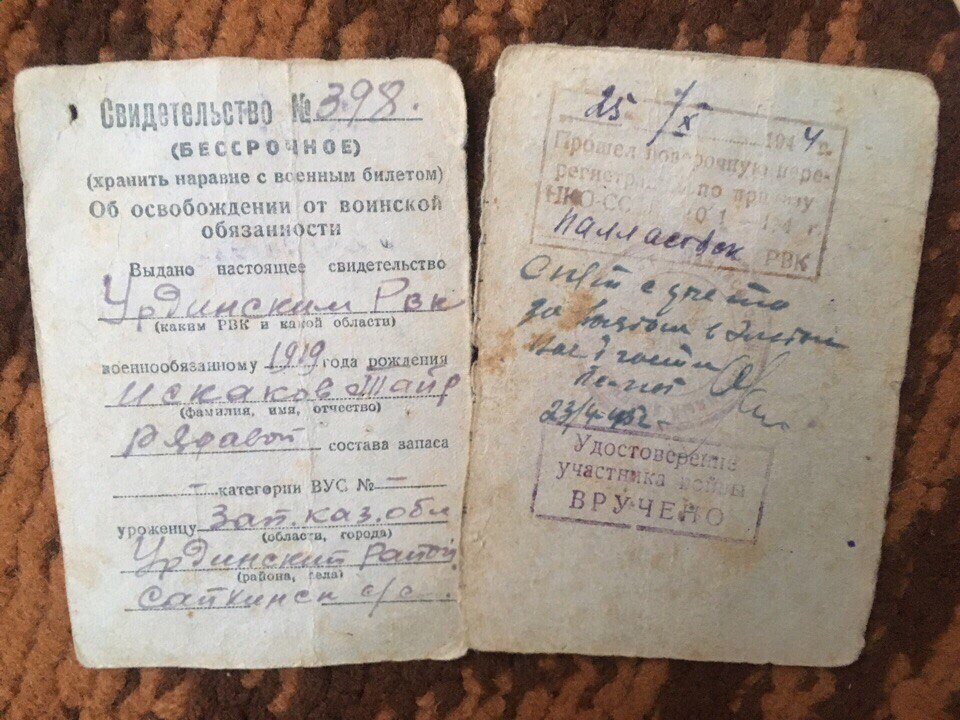 Свидетельство № 398.
(БЕССРОЧНОЕ)
(хранить наравне с военным билетом)
Об освобождении от воинской
обязанности
Выдано настоящее свидетельство
Урдинским Рвк
(каким РВК и какой области)
военнообязанному 1919 года рождения
Искаков Таир
(фамилия, имя, отчество)
рядавой состава запаса
– категории ВУС № –
уроженцу Зап. каз. обл
(области, города)
Урдинский район
(района, села)
Сайхинск с/с.
25/X 1944 г.
Прошел поверочную пере-
регистрацию по приказу
НКО-СС
РВК
Снят с учета
23/4-
Удостоверение
участника войны
ВРУЧЕНО